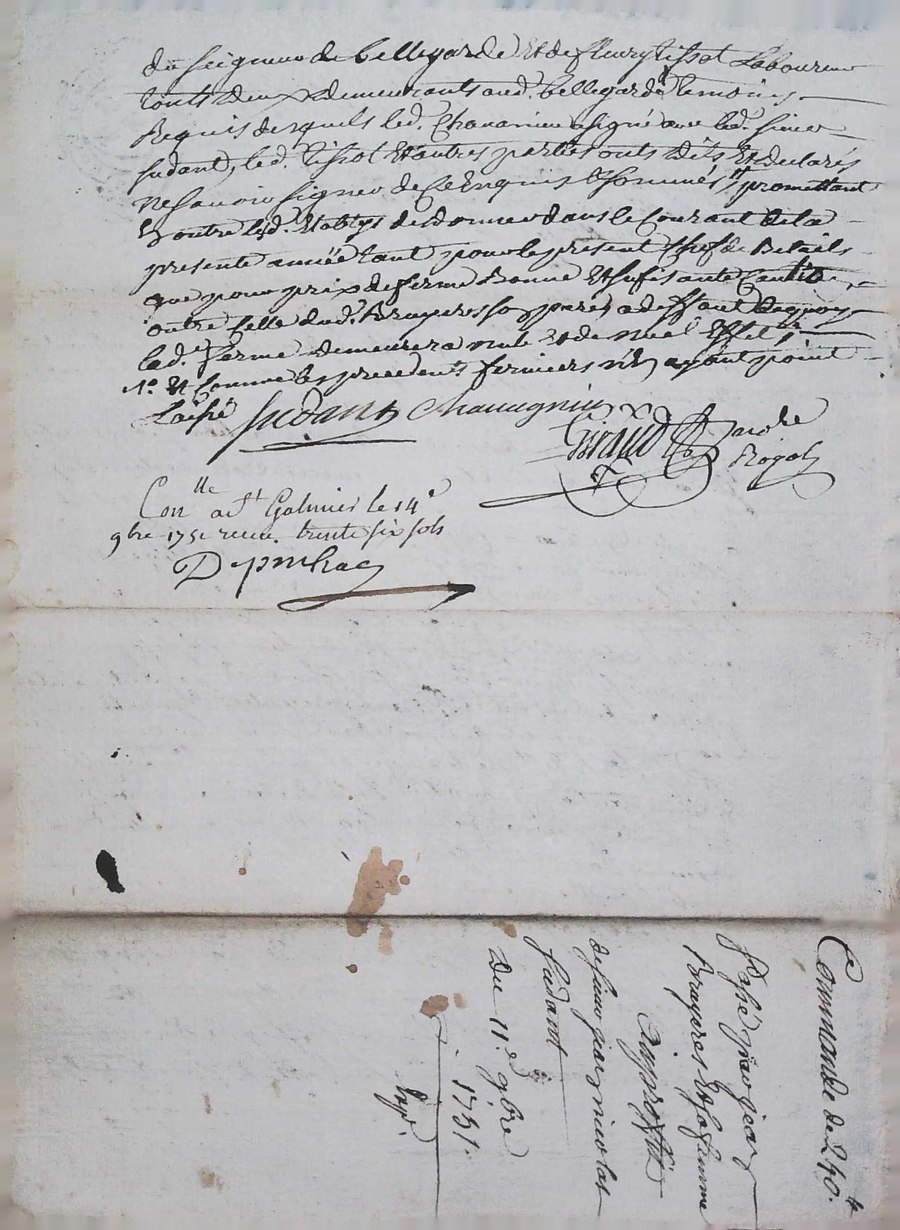 du Seigneur de bellegarde Et de fleury tissot Laboureur
touts deux demeurants aud. bellegarde temoins
Requis desquels led. Chavanieu a signé avec led. sieur
sudant, led. tissot Et autres parties onts dits Et declarés
ne savoir signer de ce Enquis Et sommés promettant
En outre led. de donner dans le Courant de la
presente année tant pour le present Chef de Betails
que pour prix de ferme Bonne Et sufisante Caution
outre Celle dud. Bruyeres son pere a deffaut de quoy
lad. ferme demeurera nulle Et de nuel Effet
Et Comme les precedents fermiers n'En ayant point
Laissé Sudant Chavagnieu
Giraud
Con.lle a St Galmier le 14e
9bre 1751 receu trente six sols
Commande de 240.
Passé par jean
Bruyeres Et sa femme
au proffit
de sieur jean nicolas
sudant
Du 11e 9bre
1751.
Expé.